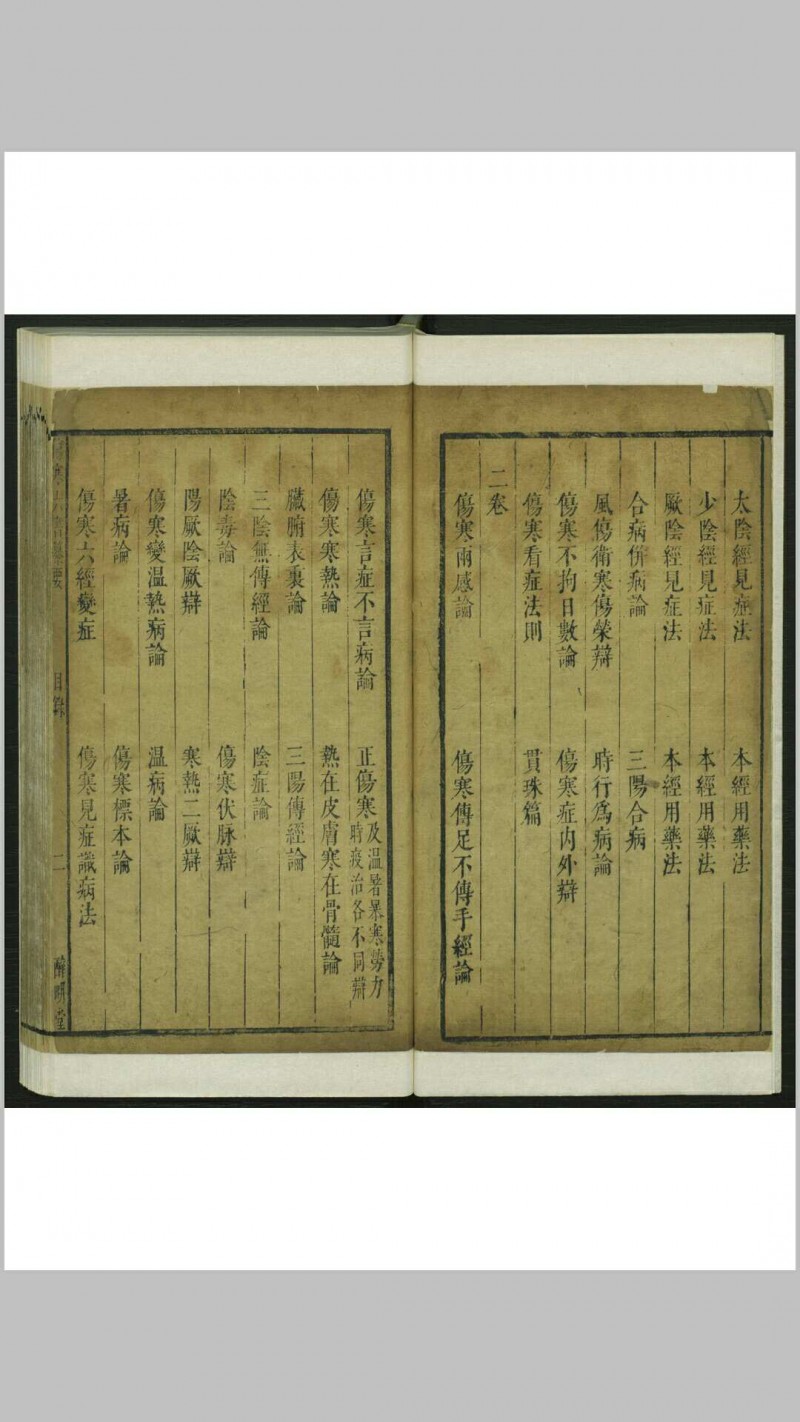 太陰經見症法　本經用藥法
少陰經見症法　本經用藥法
厥陰經見症法　本經用藥法
合病併病論　三陽合病
風傷衛寒傷榮辯　時行爲病論
傷寒不拘日數論　傷寒症内外辯
傷寒看症法則　貫珠篇
二卷
傷寒兩感論　傷寒傳足不傳手經論
傷寒言症不言病論　正傷寒及温暑暴寒勞力時疫治各不同辯
傷寒寒熱論　熱在皮膚寒在骨髓論
臟腑表裏論　三陽傳經論
三陰無傳經論　陰症論
陰毒論　傷寒伏脉辯
陽厥陰厥辯　寒熱二厥辯
傷寒變温熱病論　温病論
暑病論　傷寒標本論
傷寒六經變症　傷寒見症識病法
目錄　二